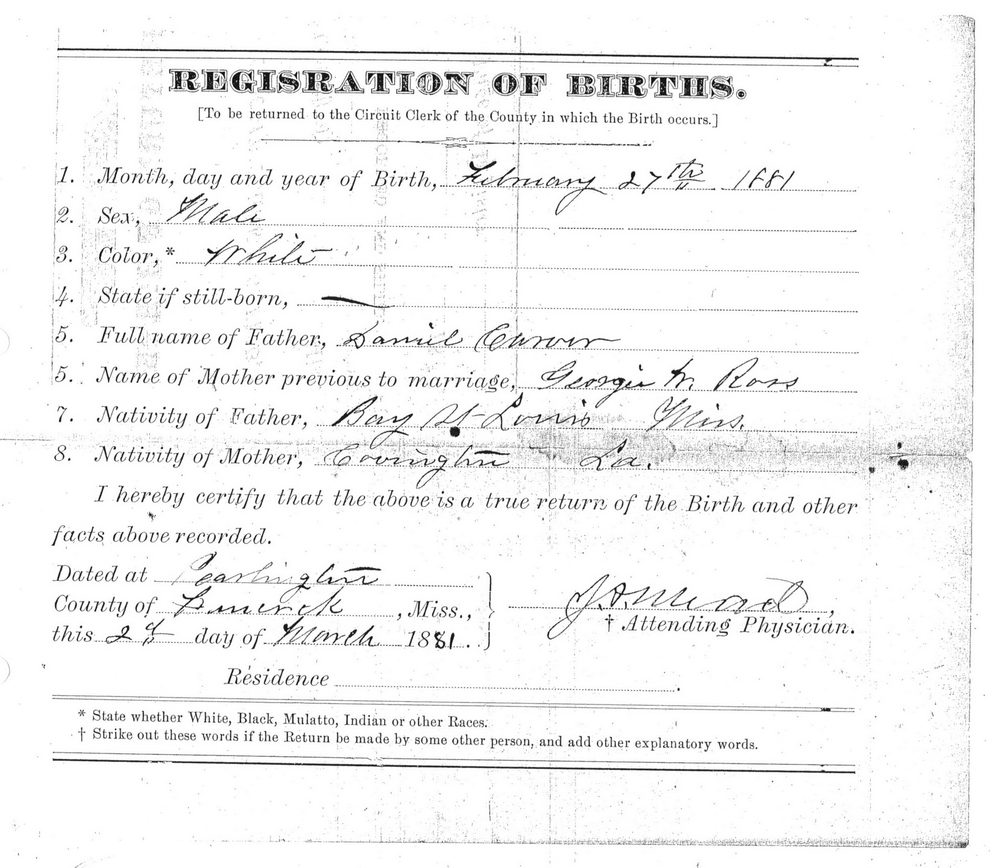 REGISRATION OF BIRTHS.
[To be returned to the Circuit Clerk of the County in which the Birth occurs.]
1. Month, day and year of Birth, February 27th 1881
2. Sex, Male
3. Color,* White
4. State if still-born, —
5. Full name of Father, Daniel Carver
5. Name of Mother previous to marriage, Georgie W. Ross
7. Nativity of Father, Bay St Louis Miss.
8. Nativity of Mother, Covington La.
I hereby certify that the above is a true return of the Birth and other
facts above recorded.
Dated at Pearlington
County of Hancock, Miss.,
this 2d day of March 1881.
J.A. Mead,
† Attending Physician.
Residence
* State whether White, Black, Mulatto, Indian or other Races.
† Strike out these words if the Return be made by some other person, and add other explanatory words.